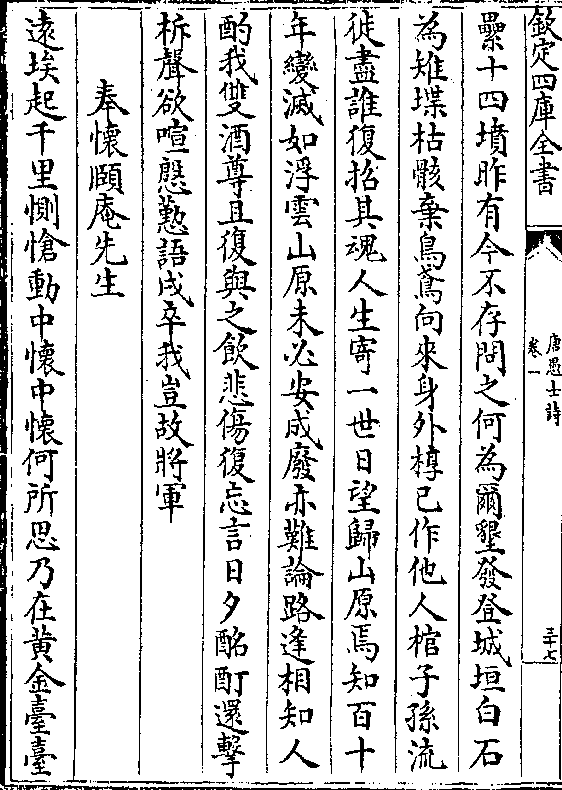 欽定四庫全書
唐愚士詩
卷一
三十七
纍十四墳昨有今不存問之何為爾墾發登城垣白石
為雉堞枯骸棄烏鳶向來身外槨已作他人棺子孫流
徙盡誰復招其魂人生寄一世日望歸山原焉知百十
年變滅如浮雲山原未必安成廢亦難論路逢相知人
酌我雙酒尊且復與之飲悲傷復忘言日夕酩酊還擊
柝聲欲喧慇懃語戍卒我豈故將軍
奉懷頤庵先生
遠埃起千里惻愴動中懷中懷何所思乃在黄金臺臺